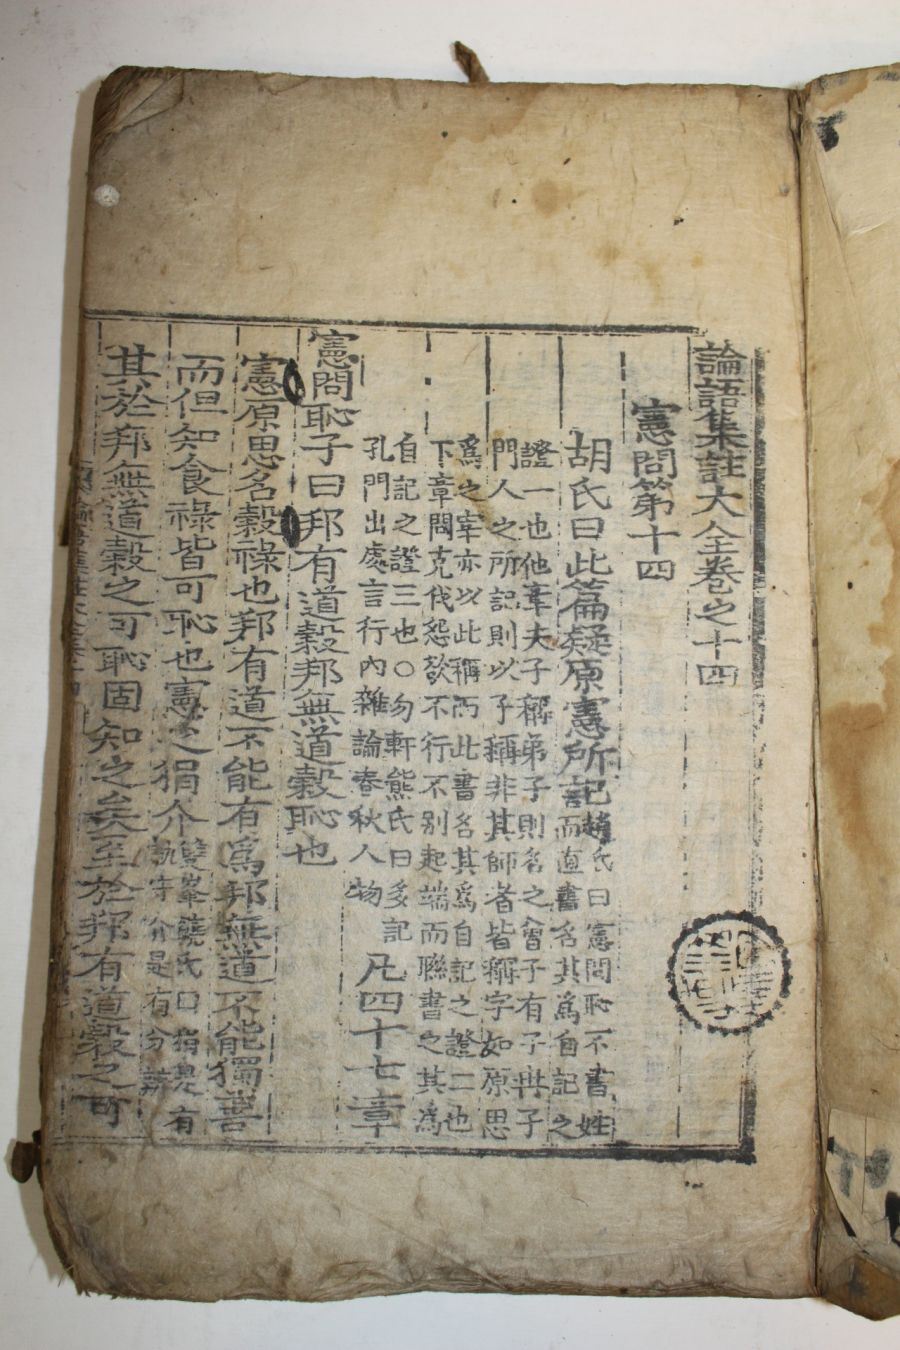 論語集註大全卷之十四
憲問第十四
胡氏曰此篇疑原憲所記
趙氏曰憲問恥不書姓
而直書名其爲自記之
證一也他章夫子稱弟子則名之曾子有子冉子
門人之所記則以子稱非其師者皆稱字如原思
爲之宰亦以此稱而此書名其爲自記之證二也
下章問克伐怨欲不行不别起端而聯書之其爲
自記之證三也○勿軒熊氏曰多記
孔門出處言行內雜論春秋人物
凡四十七章
憲問恥子曰邦有道穀邦無道穀恥也
憲原思名穀祿也邦有道不能有爲邦無道不能獨善
而但知食祿皆可恥也憲之狷介
雙峯饒氏曰狷是有
執守介是有分辨
其於邦無道穀之可恥固知之矣至於邦有道穀之可